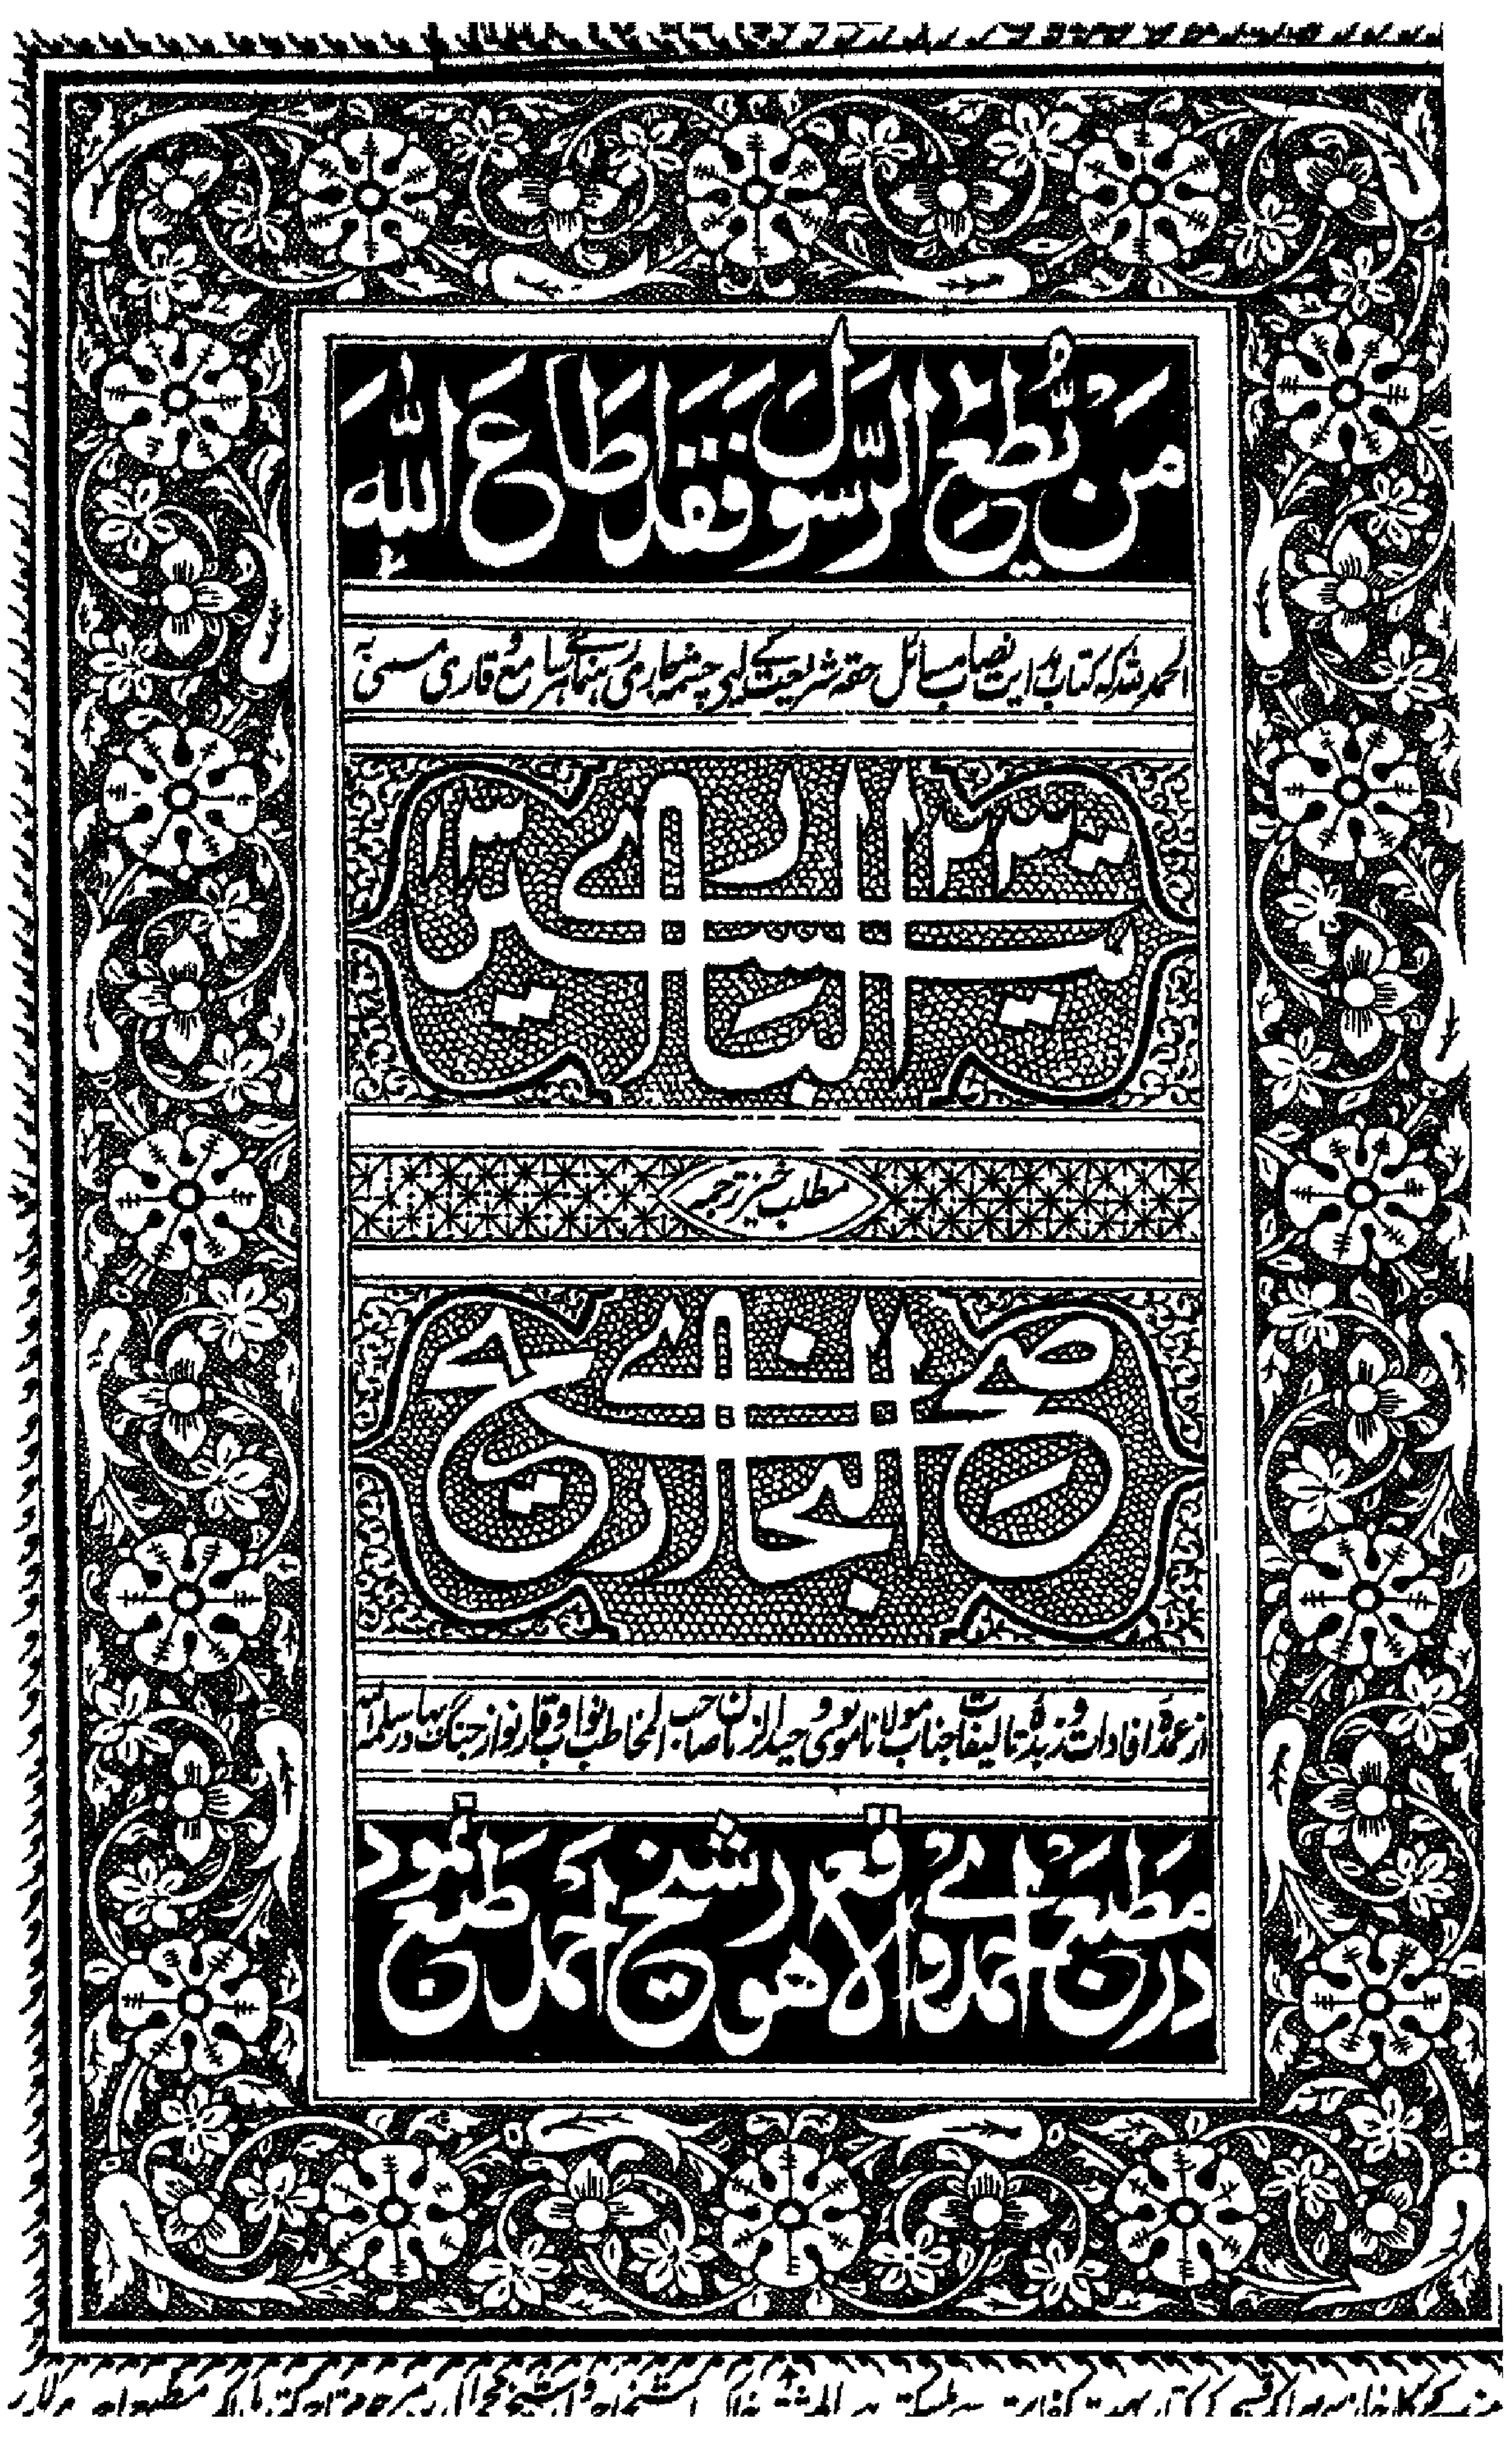 من يُطِعِ الرَّسُولَ فَقَدْ أَطَاعَ اللّٰهَ
الحمد للہ کہ کتاب ہدایت نصاب مسائل حقہ شریعت کے لیے چشمہ جاری رہنمائے ہر سامع و قاری مسمی بہ
تيسير الباري
مطلب خیز ترجمہ
صحيح البخاري
از عمدہ افادات و زبدہ تالیفات جناب مولانا مولوی وحید الزمان صاحب المخاطب نواب وقار نواز جنگ بہادر سلمہ اللہ
در مطبع احمدی واقع لاہور شیخ احمد طبع نمود